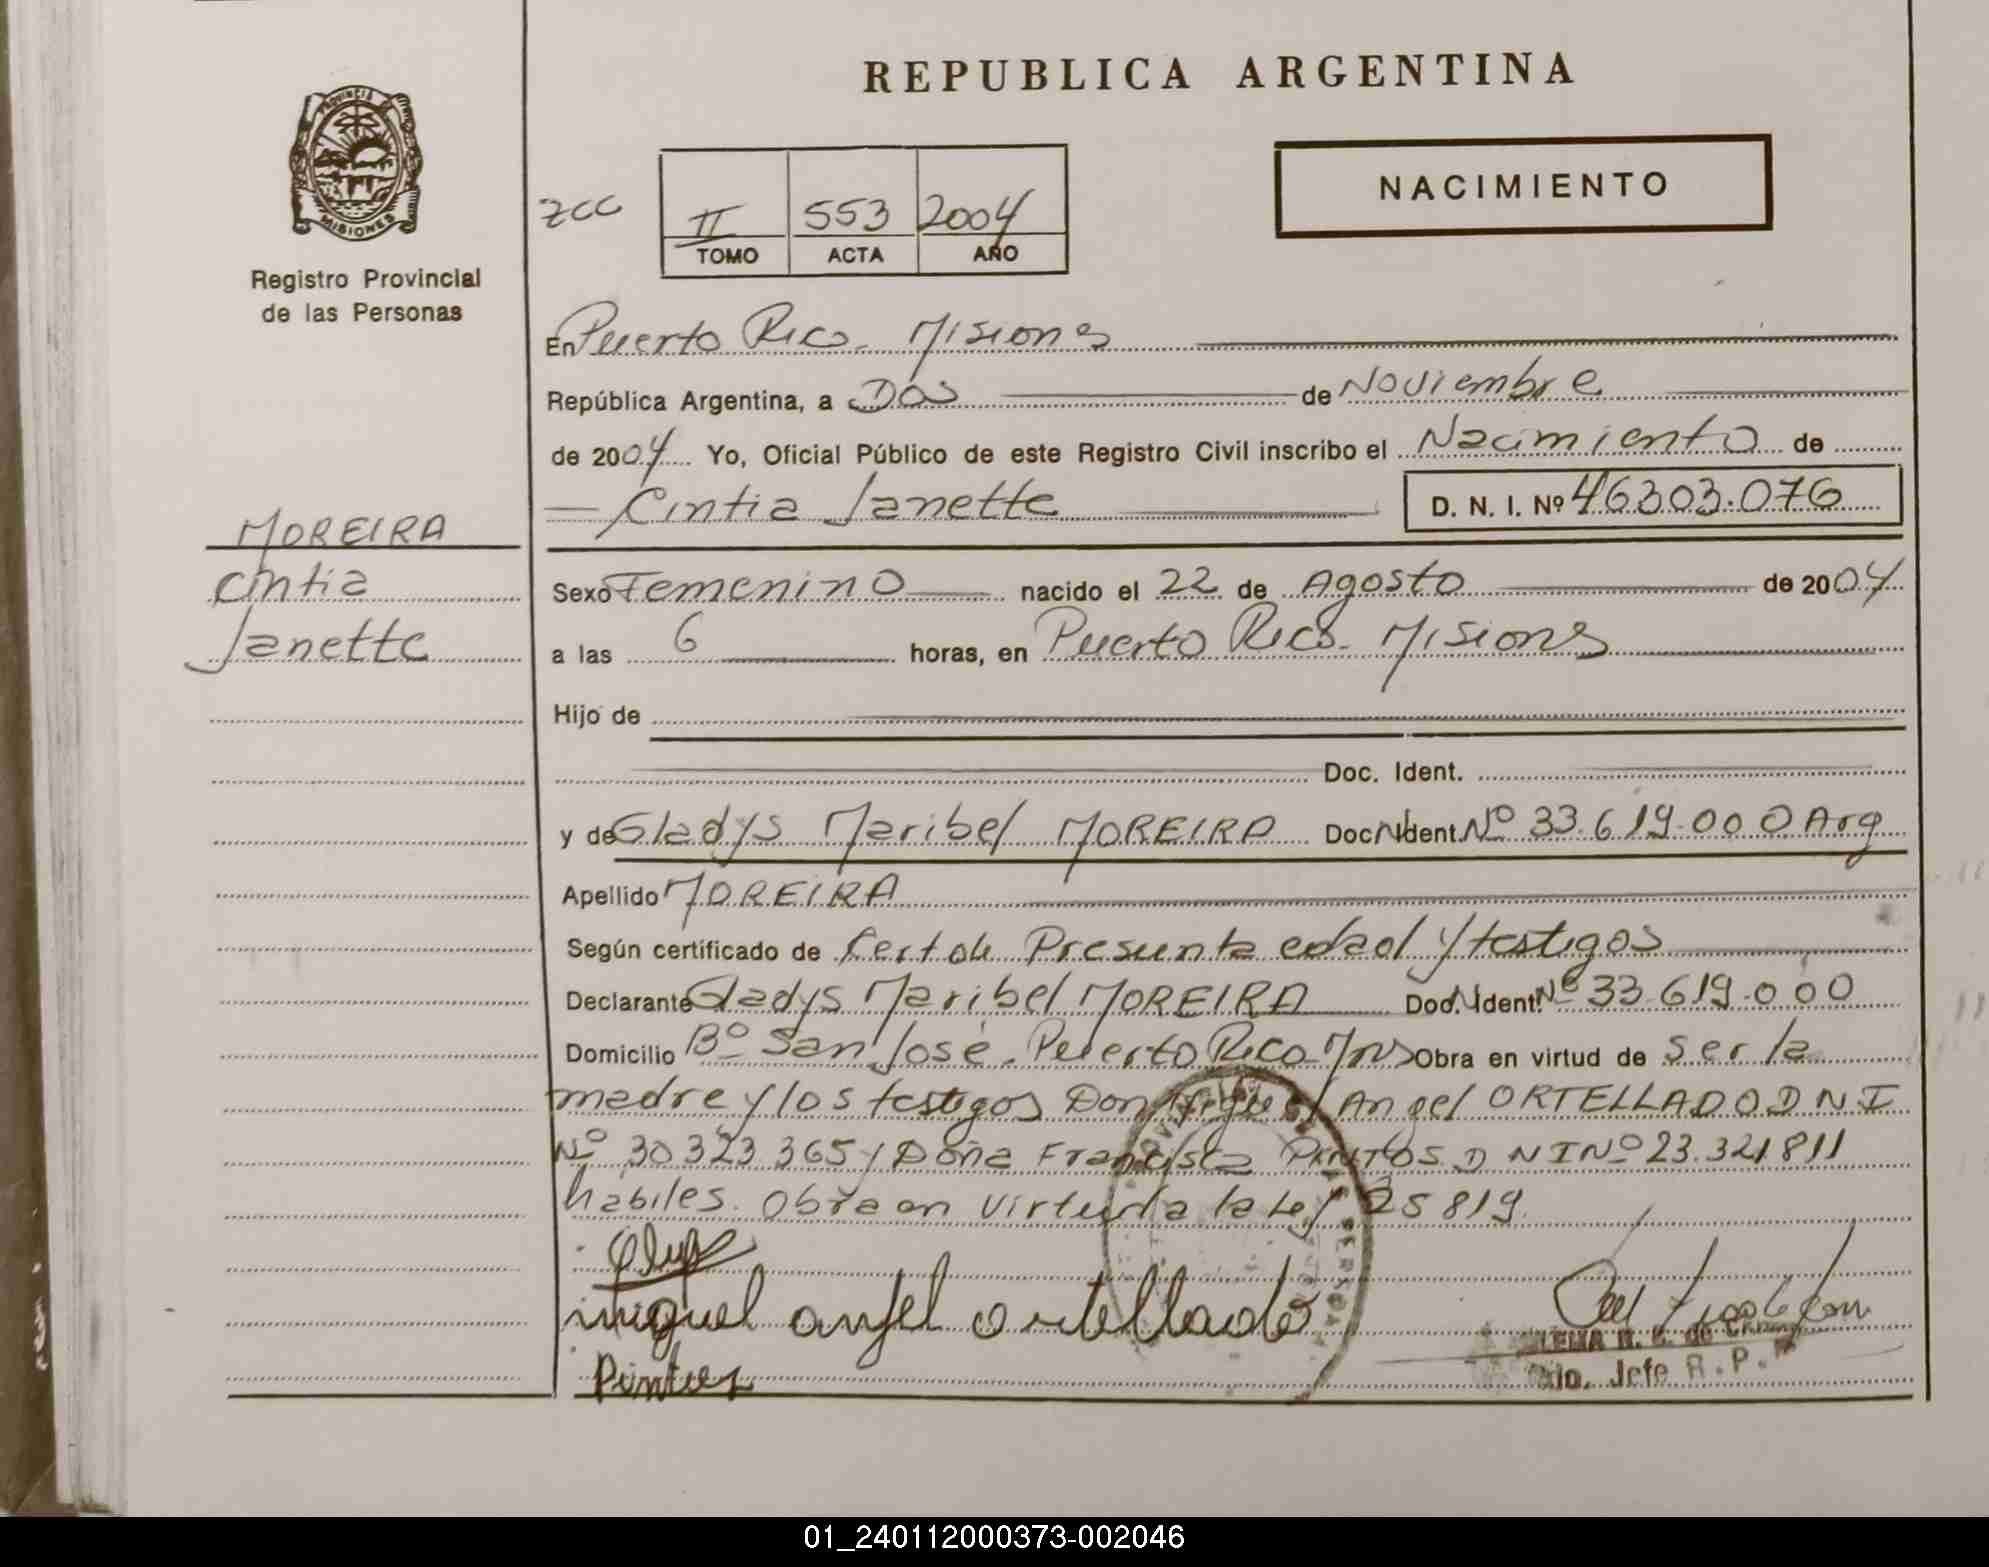 REPUBLICA ARGENTINA
PROVINCIA
MISIONES
Registro Provincial
de las Personas
zcc
II 553 2004
TOMO ACTA AÑO
NACIMIENTO
En Puerto Rico. Misiones
República Argentina, a Dos de Noviembre
de 2004 Yo, Oficial Público de este Registro Civil inscribo el Nacimiento de
Cintia Janette D. N. I. Nº 46303.076
MOREIRA
Cintia
Janette
Sexo Femenino nacido el 22 de Agosto de 2004
a las 6 horas, en Puerto Rico. Misiones
Hijo de
Doc. Ident.
y de Gladys Maribel MOREIRA Doc. Ident. Nº 33.619.000 Arg
Apellido MOREIRA
Según certificado de Cert de Presunta edad y testigos
Declarante Gladys Maribel MOREIRA Doc. Ident. Nº 33.619.000
Domicilio Bº San José. Puerto Rico Mns Obra en virtud de ser la
madre y los testigos Don Miguel Angel ORTELLADO D N I
Nº 30 323 365 y Doña Francisca PINTOS D N I Nº 23.321811
hábiles. Obra en virtud a la Ley 25819.
miguel anjel ortellado
Pintos
do. Jefe R. P. P.
01_240112000373-002046